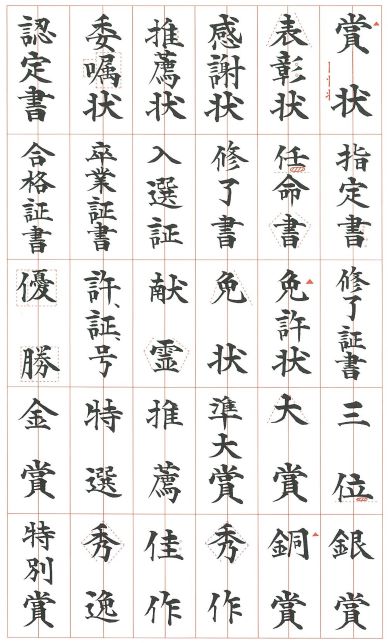 賞状
表彰状
感謝状
推薦状
委嘱状
認定書
指定書
任命書
修了書
入選証
卒業証書
合格証書
修了証書
免許状
免状
献霊
許、証、号
優勝
三位
大賞
準大賞
推薦
特選
金賞
銀賞
銅賞
秀作
佳作
秀逸
特別賞